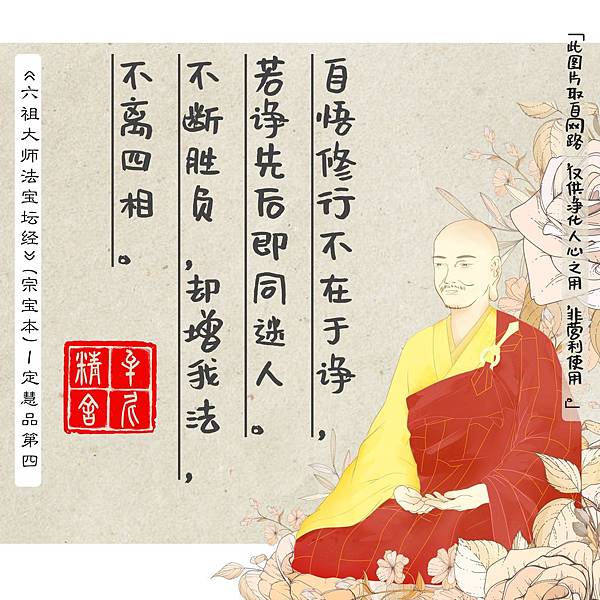 「此图片取自网路 仅供净化人心之用 非营利使用。」
自悟修行不在于诤，
若诤先后即同迷人。
不断胜负，却增我法，
不离四相。
精舍
《六祖大师法宝坛经》(宗宝本)—定慧品第四